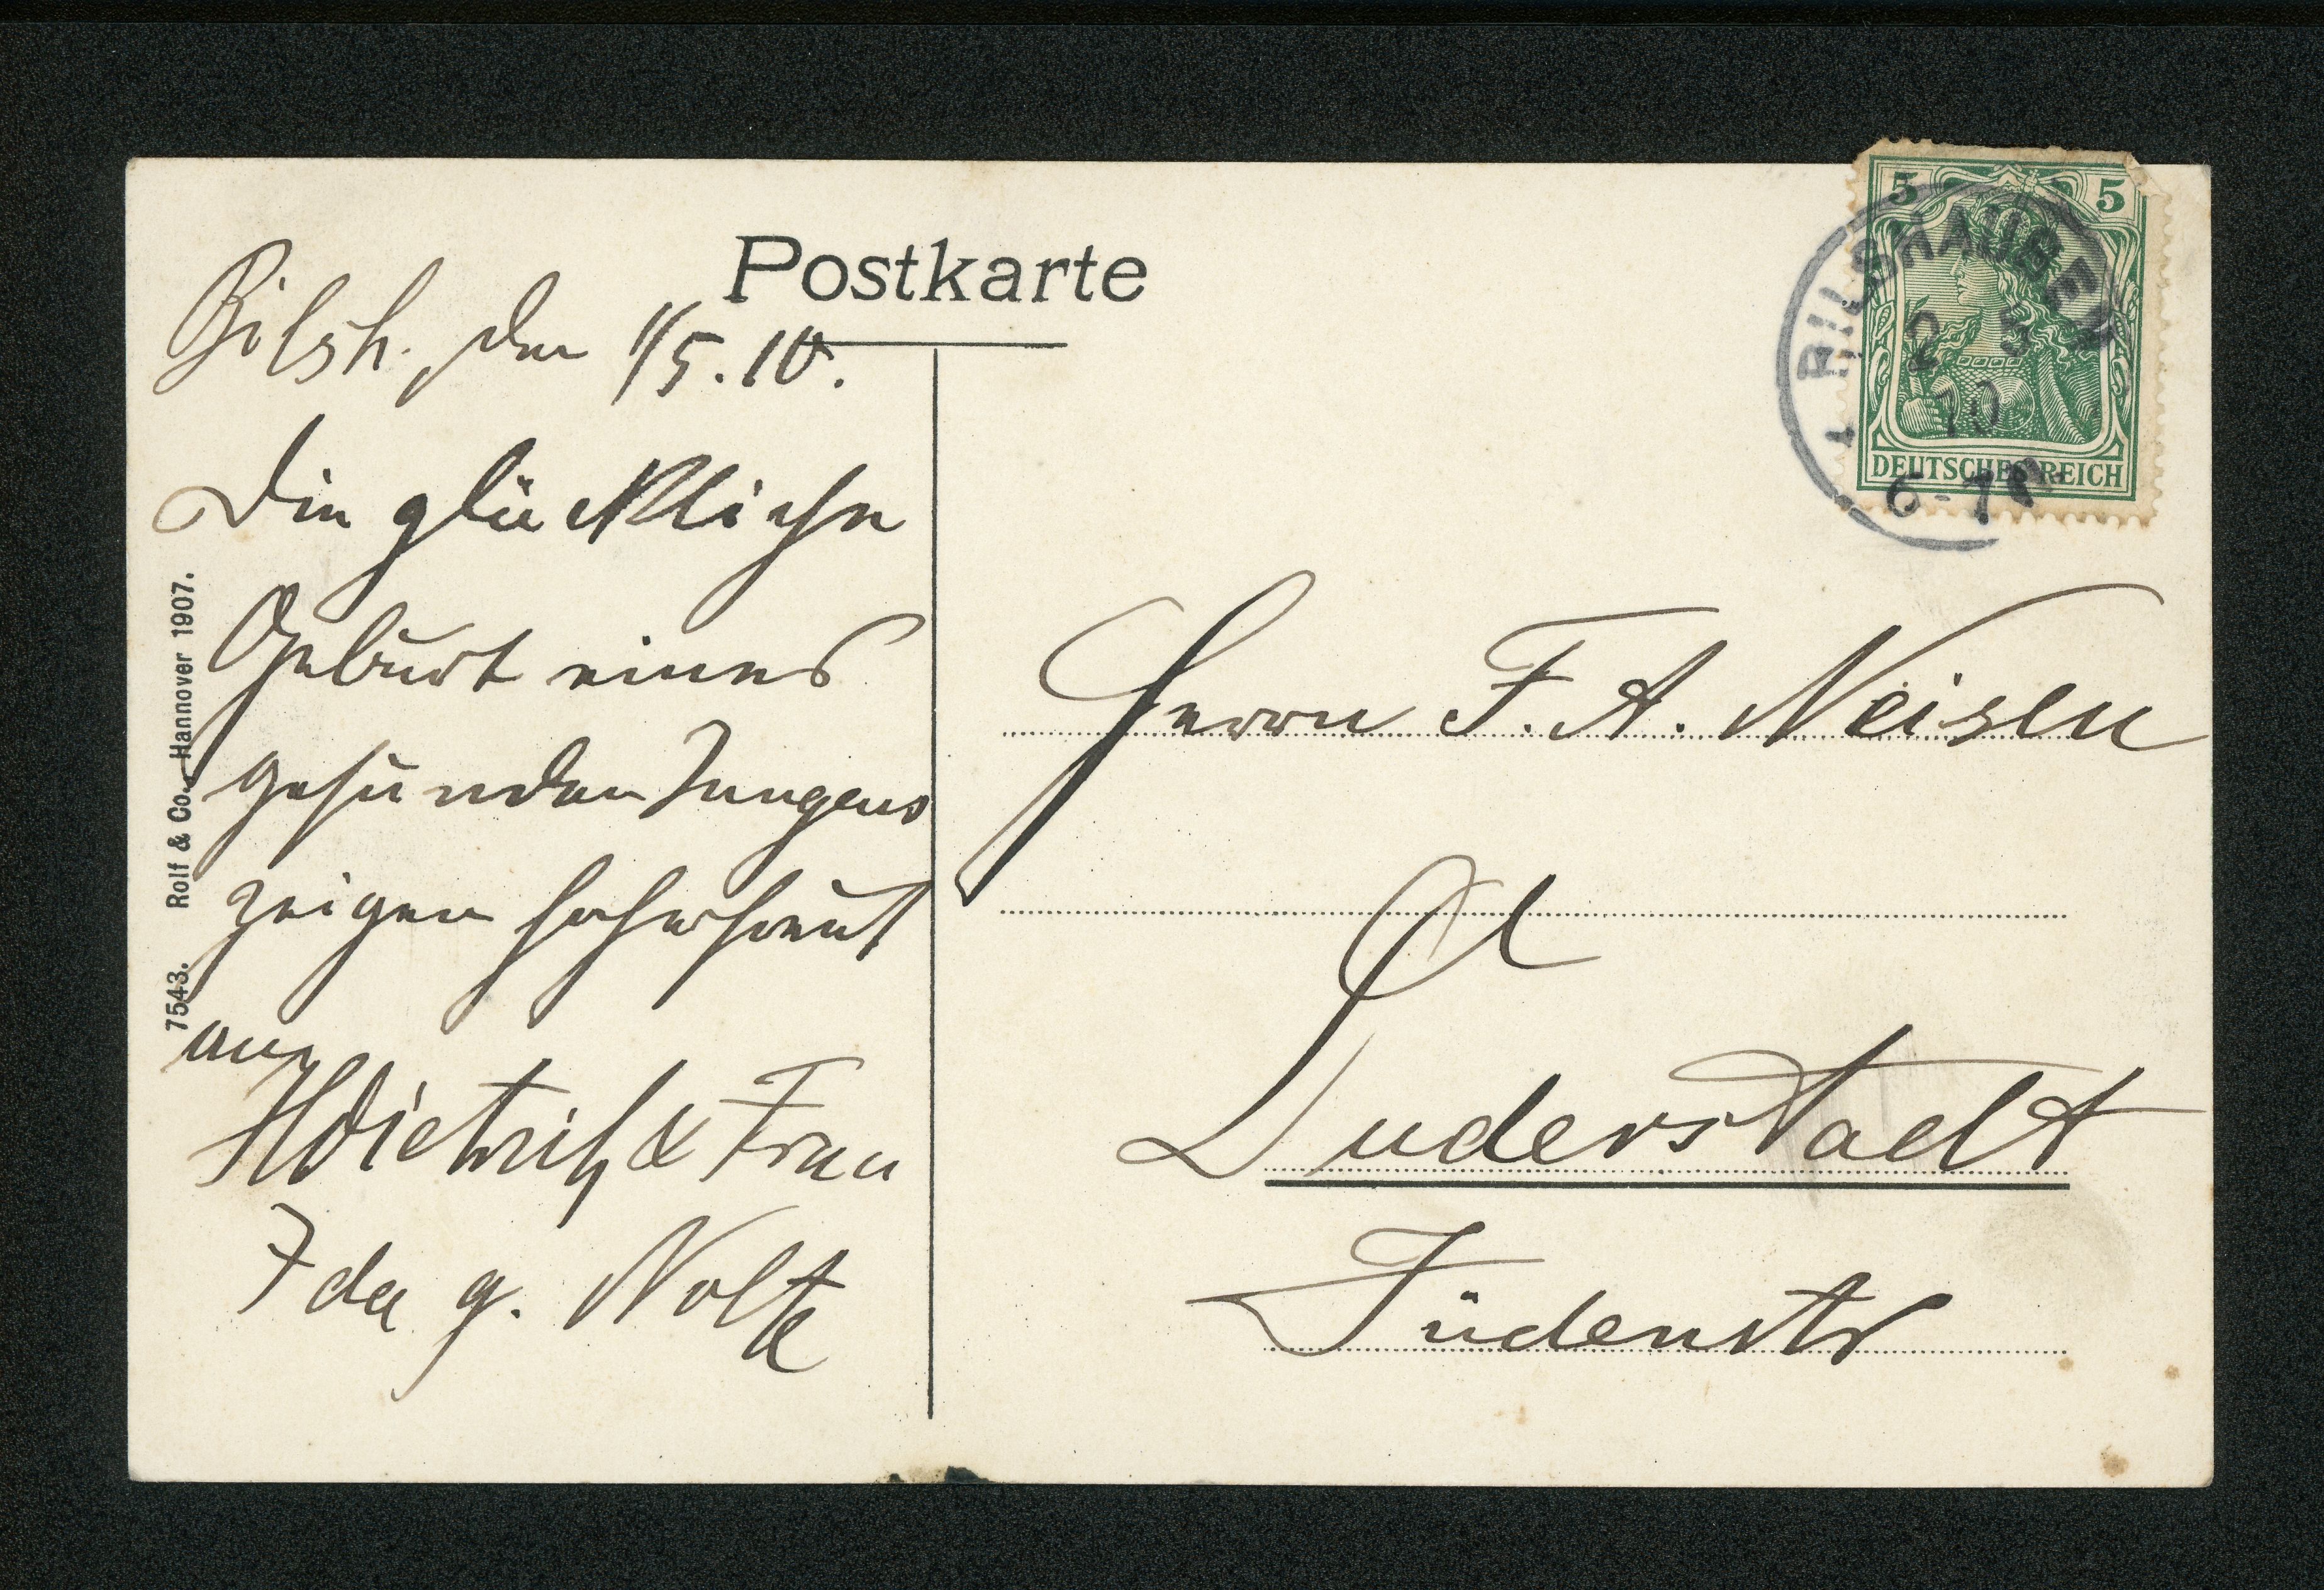 Postkarte
Bilsh. den 1/5.10.
Die glückliche
Geburt eines
gesunden Jungens
zeigen hocherfreut
an
H Dietrich & Frau
Ida g. Nolte
7543. Rolf & Co., Hannover 1907.
5 5
DEUTSCHES REICH
BILSHAUSEN
2 5
10
6-7N
Herrn F. A. Neisen
Duderstadt
Jüdenstr